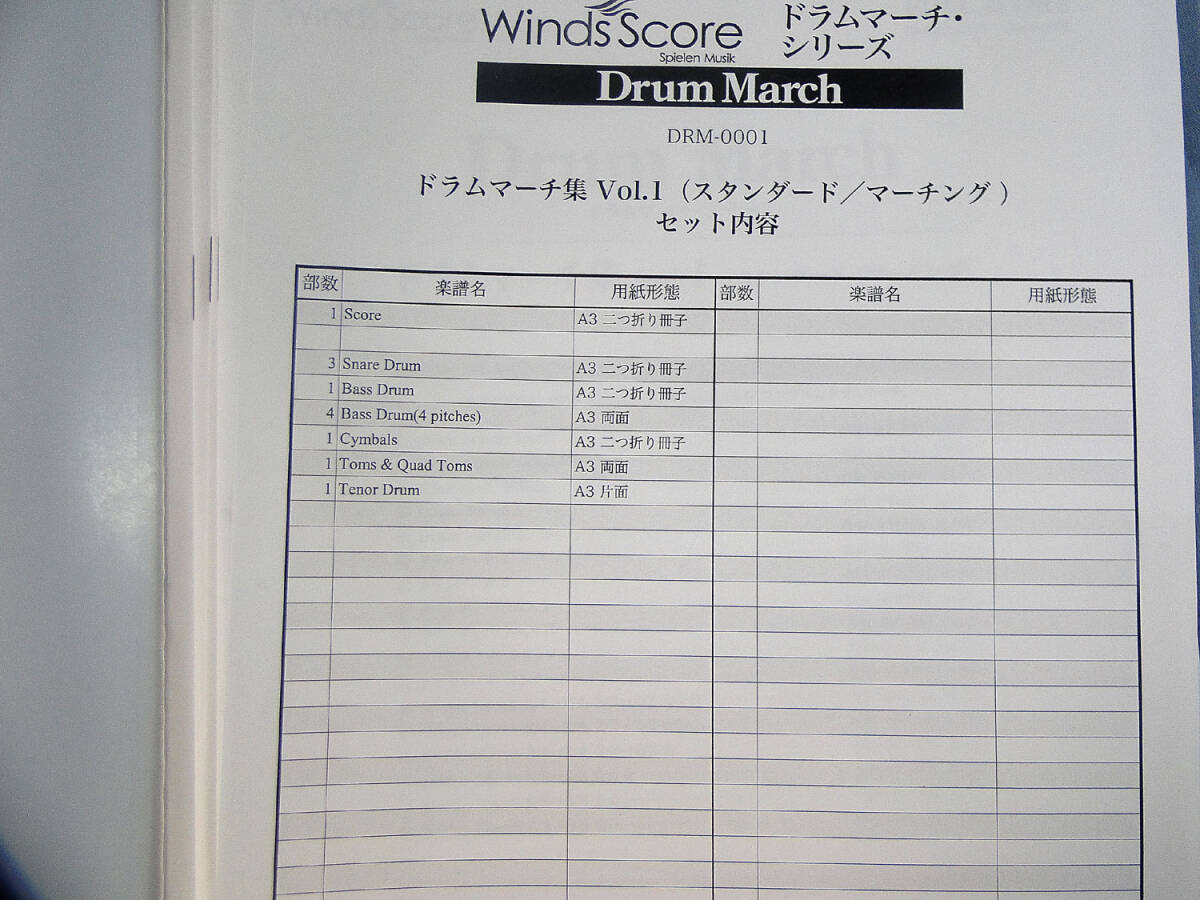 Winds Score
Spielen Musik
ドラムマーチ・
シリーズ
Drum March
DRM-0001
ドラムマーチ集 Vol.1（スタンダード／マーチング）
セット内容
部数 楽譜名 用紙形態 部数 楽譜名 用紙形態
1 Score A3 二つ折り冊子
3 Snare Drum A3 二つ折り冊子
1 Bass Drum A3 二つ折り冊子
4 Bass Drum(4 pitches) A3 両面
1 Cymbals A3 二つ折り冊子
1 Toms & Quad Toms A3 両面
1 Tenor Drum A3 片面